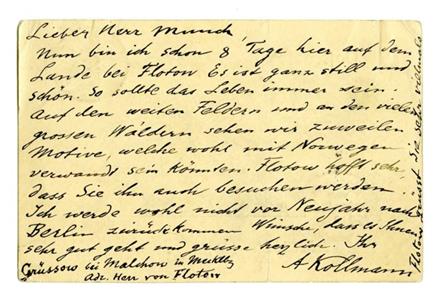 Lieber Herr Munch
Nun bin ich schon 8 Tage hier auf dem
Lande bei Flotow Es ist ganz still und
schön. So sollte das Leben immer sein.
Auf den weiten Feldern und an den vielen
grossen Wäldern sehen wir zuweilen
Motive, welche wohl mit Norwegen
verwandt sein könnten. Flotow hofft sehr,
dass Sie ihn auch besuchen werden.
Ich werde wohl nicht vor Neujahr nach
Berlin zurückkommen Wünsche, dass es Ihnen
sehr gut geht und grüsse herzlich. Ihr
A Kollmann
Grüssow bei Malchow in Mecklbg
Adr. Herr von Flotow
Flotow grüsst Sie sehr vielmals